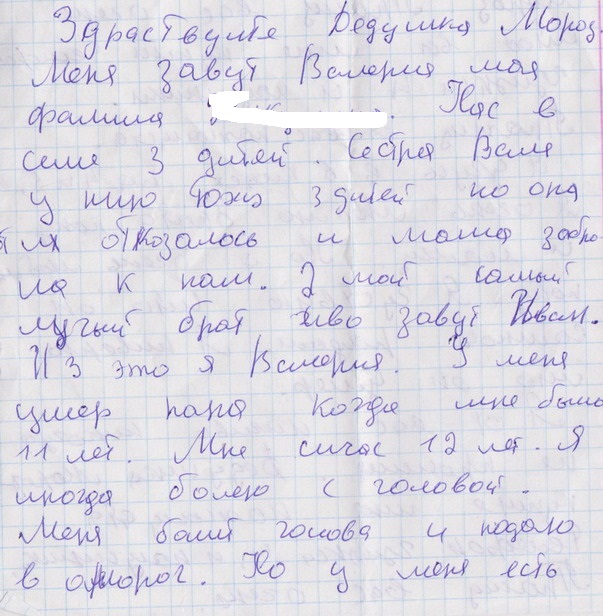 Здраствуйте Дедушка Мороз.
Меня завут Валерия моя
фамилия . Нас в
семе 3 дитей. Сестра Валя
у нию тожэ 3 дитей но она
от их отказалось и мама забра
ла к нам. 2 мой самый
лучый брат ево завут Иван.
И 3 это я Валерия. У меня
умер папа когда мне было
11 лет. Мне сичас 12 лет. Я
иногда болею с головой.
Меня болит голова и подаю
в оморог. Но у меня есть